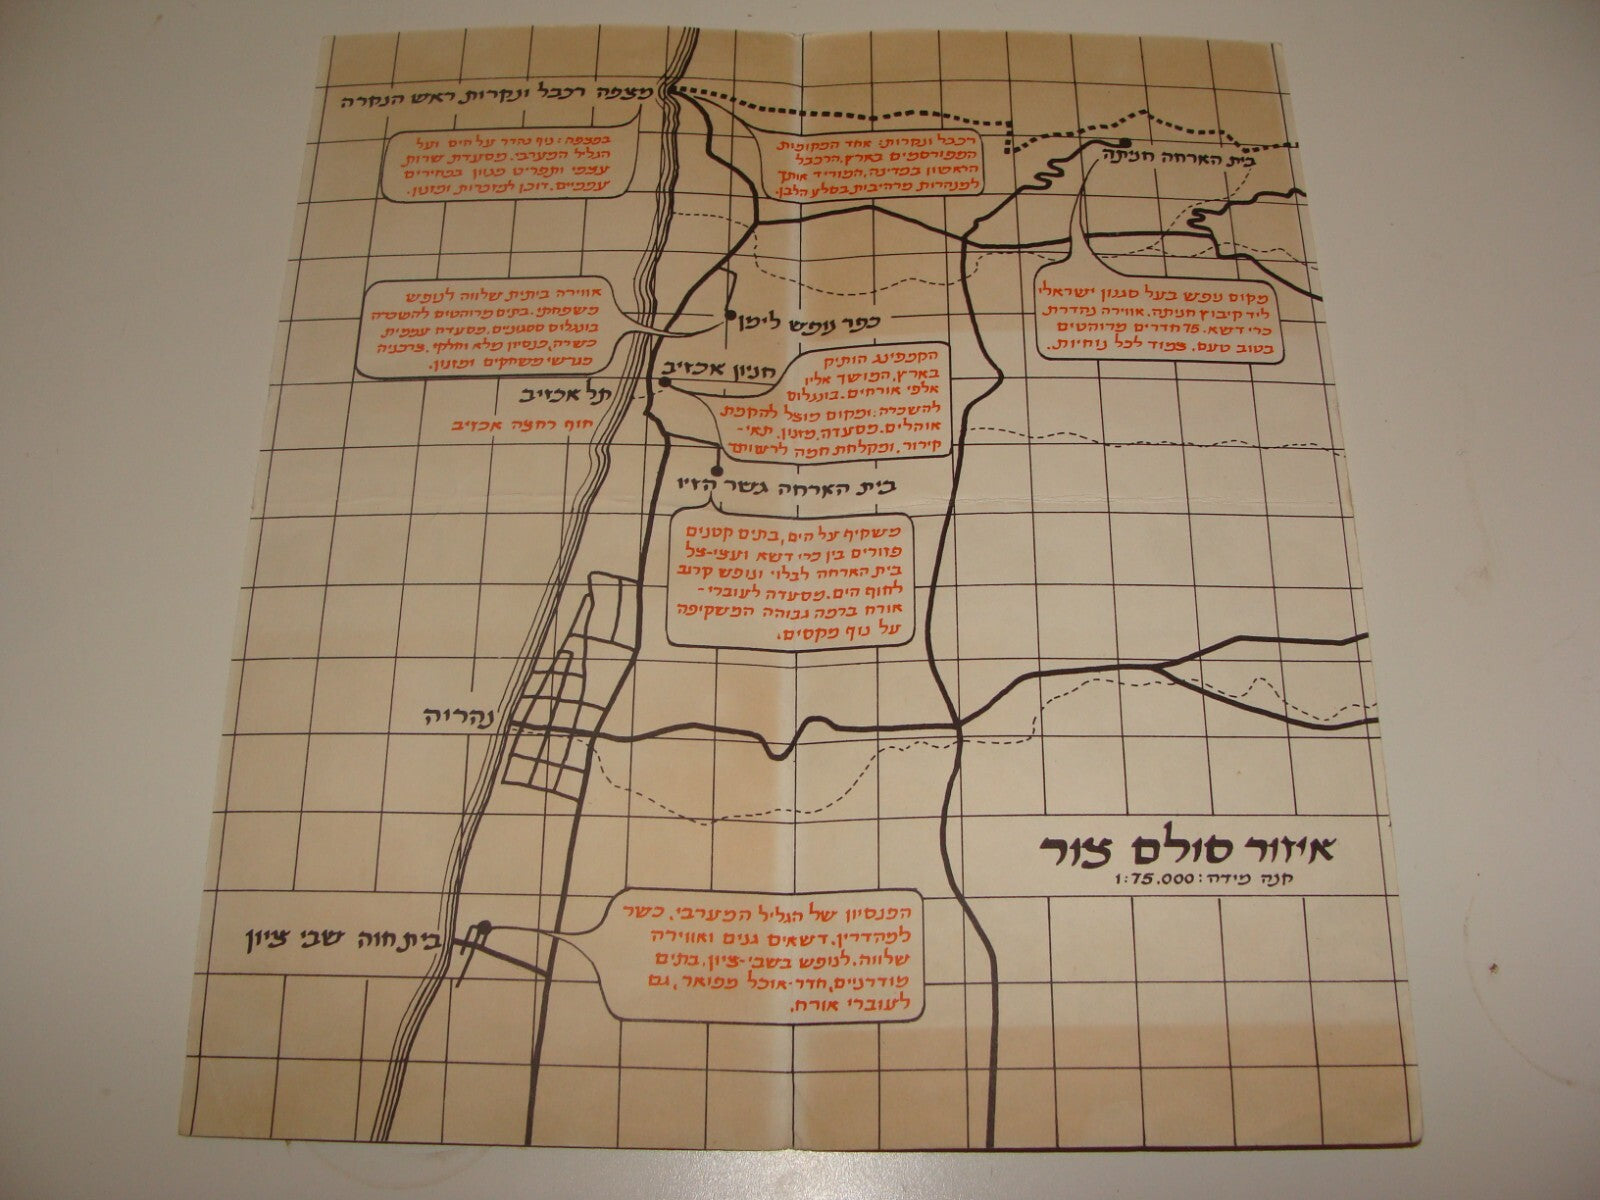 מצפה רכבל ונקרות ראש הנקרה
במצפה: נוף נהדר על הים ועל
הגליל המערבי. מסעדת שרות
עצמי ותפריט מגוון במחירים
עממיים. דוכן למזכרות ומזנון.
רכבל ונקרות: אחד המקומות
המפורסמים בארץ. הרכבל
הראשון במדינה, המוריד אותך
למנהרות מרהיבות בסלע הלבן.
בית הארחה חניתה
מקום נופש בעל סגנון ישראלי
ליד קיבוץ חניתה. אווירה נהדרת.
כרי דשא. 75 חדרים מרוהטים
בטוב טעם. צמוד לכל נוחיות.
אווירה ביתית שלווה לנופש
משפחתי. בתים מרוהטים להשכרה
בונגלוס ססגוניים, מסעדה עממית
כשרה, פנסיון מלא וחלקי. צרכניה
מגרשי משחקים ומזנון.
כפר נופש לימן
חניון אכזיב
הקמפינג הותיק
בארץ, המושך אליו
אלפי אורחים. בונגלוס
להשכרה ומקום מוצל להקמת
אוהלים. מסעדה, מזנון, תאי-
קירור, ומקלחת חמה לרשותך
תל אכזיב
חוף רחצה אכזיב
בית הארחה גשר הזיו
משקיף על הים, בתים קטנים
פזורים בין כרי דשא ועצי-צל
בית הארחה לבלוי ונופש קרוב
לחוף הים. מסעדה לעוברי-
אורח ברמה גבוהה המשקיפה
על נוף מקסים.
נהריה
איזור סולם צור
קנה מידה: 1:75.000
בית חוה שבי ציון
הפנסיון של הגליל המערבי, כשר
למהדרין. דשאים גנים ואווירה
שלווה. לנופש בשבי-ציון, בתים
מודרניים, חדר-אוכל מפואר, גם
לעוברי אורח.